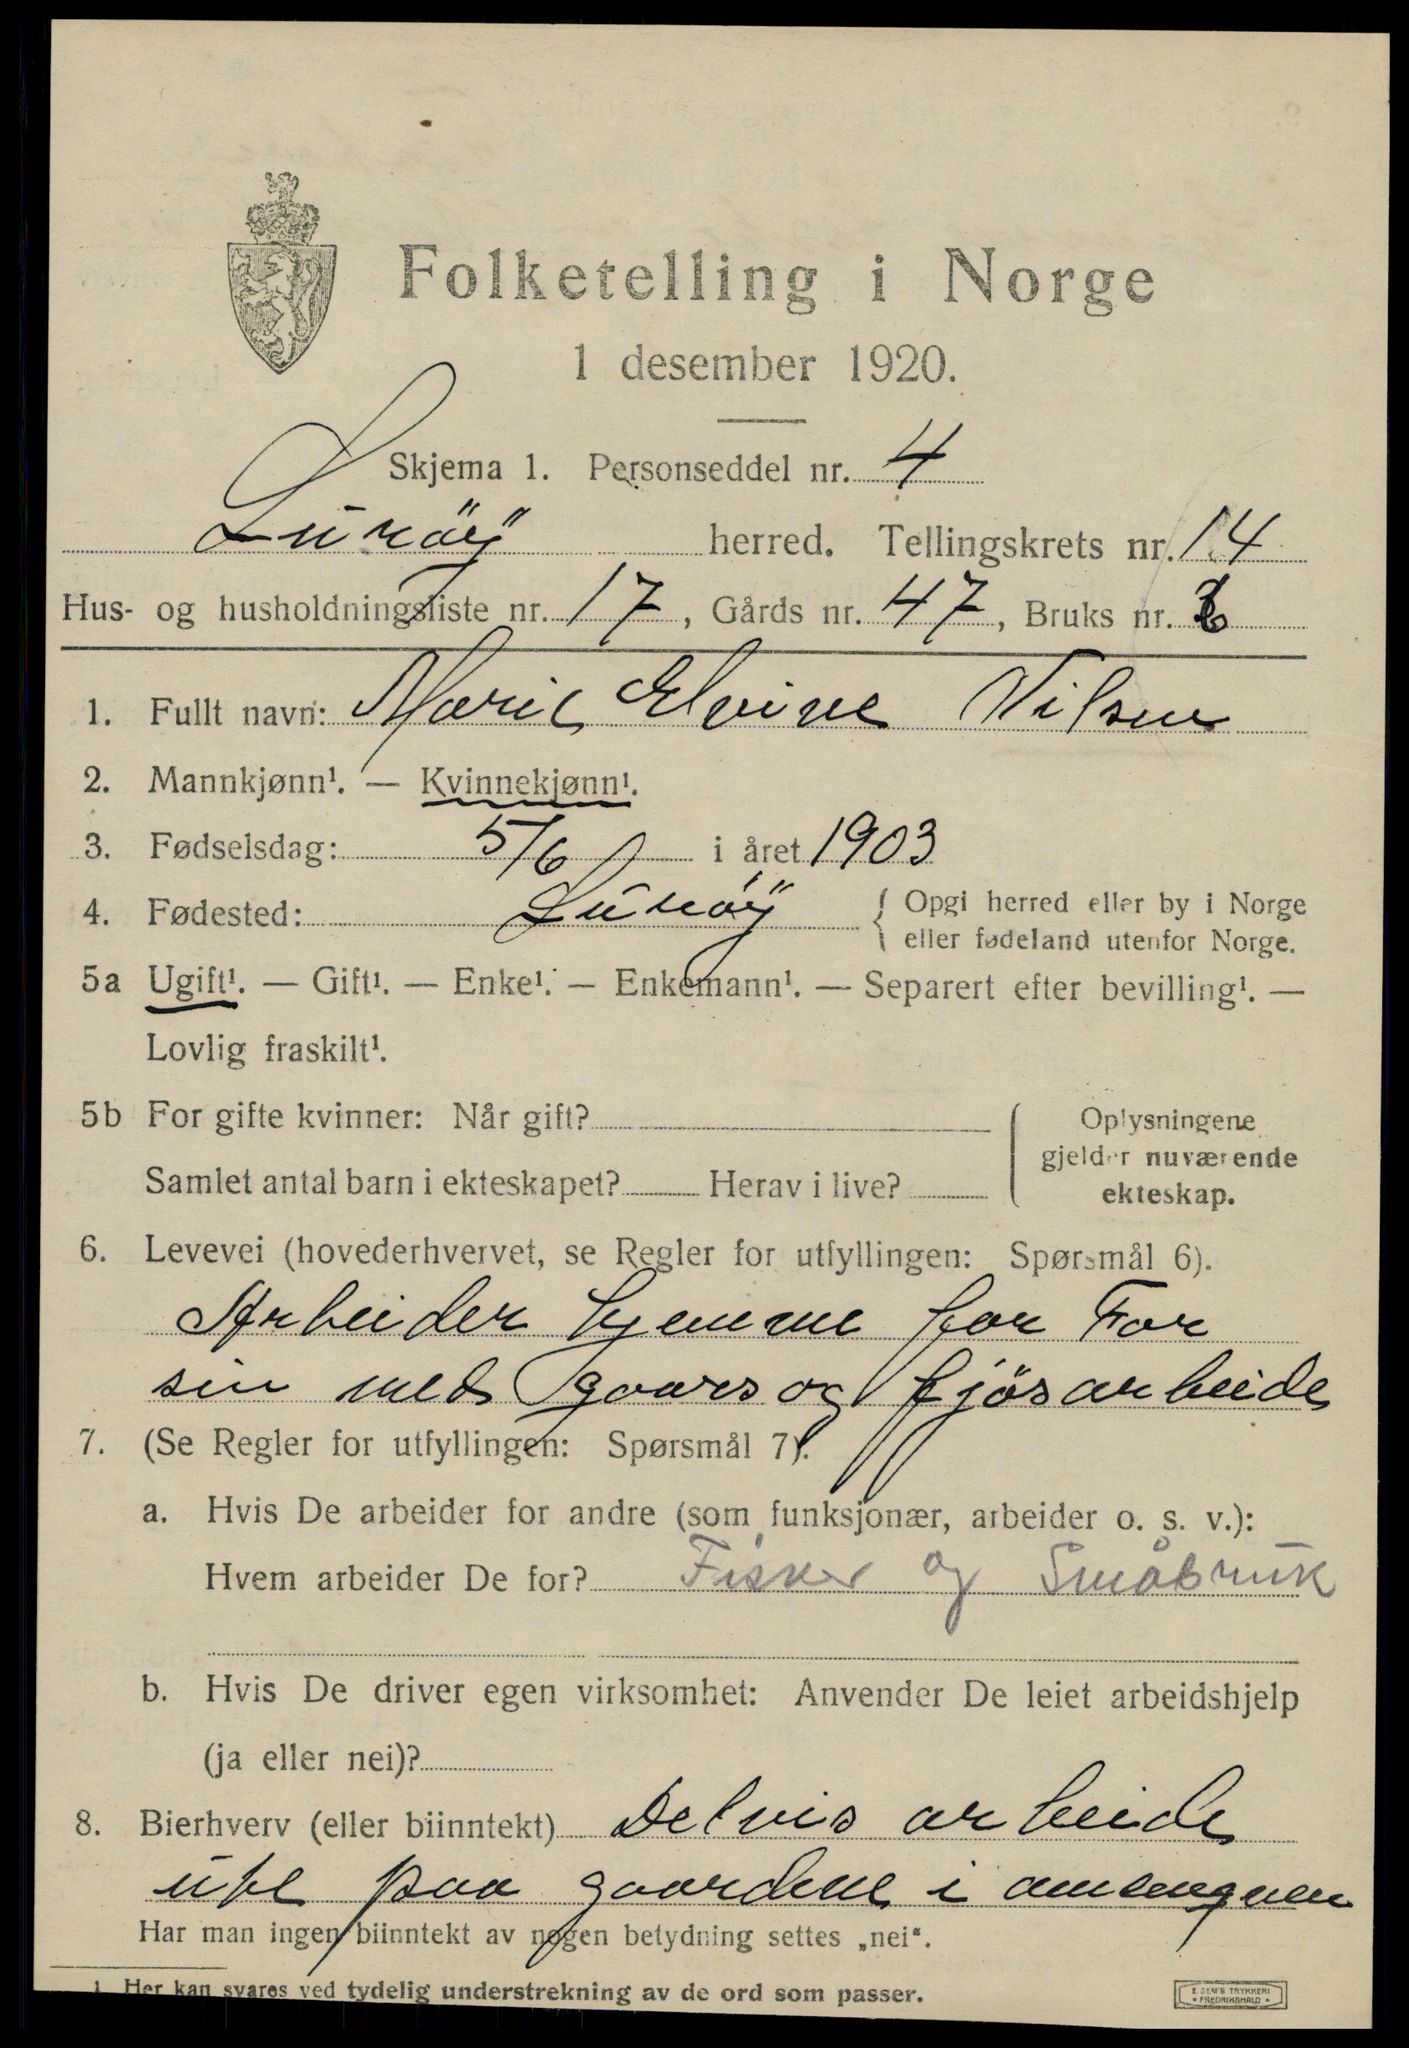 Folketelling i Norge
1 desember 1920.
Skjema 1. Personseddel nr. 4
Luröy herred. Tellingskrets nr. 14
Hus- og husholdningsliste nr. 17, Gårds nr. 47, Bruks nr.
1. Fullt navn: Marie Elvine Nilsen
2. Mannkjønn¹. — Kvinnekjønn¹.
3. Fødselsdag: 5/6 i året 1903
4. Fødested: Luröy { Opgi herred eller by i Norge
eller fødeland utenfor Norge.
5a Ugift¹. — Gift¹. — Enke¹. — Enkemann¹. — Separert efter bevilling¹. —
Lovlig fraskilt¹.
5b For gifte kvinner: Når gift? Oplysningene
gjelder nuværende
Samlet antal barn i ekteskapet? Herav i live? ekteskap.
6. Levevei (hovederhvervet, se Regler for utfyllingen: Spørsmål 6).
Arbeider hjemme for Far
sin med gaars og fjösarbeide
7. (Se Regler for utfyllingen: Spørsmål 7).
a. Hvis De arbeider for andre (som funksjonær, arbeider o. s. v.):
Hvem arbeider De for? Fisker og Småbruk
b. Hvis De driver egen virksomhet: Anvender De leiet arbeidshjelp
(ja eller nei)?
8. Bierhverv (eller biinntekt) Delvis arbeide
ute paa gaardene i omengnen
Har man ingen biinntekt av nogen betydning settes „nei“.
1. Her kan svares ved tydelig understrekning av de ord som passer.
E. SEM'S TRYKKERI
• FREDRIKSHALD •